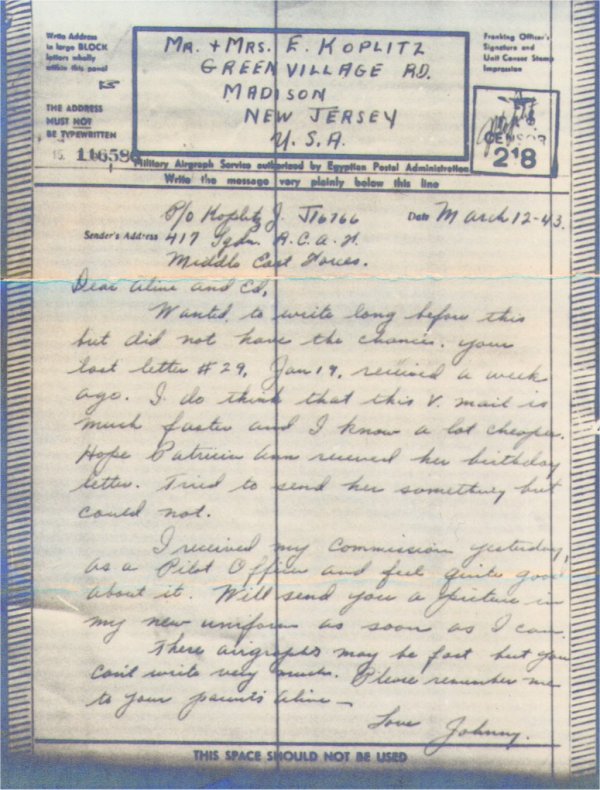 Write Address
in large BLOCK
letters wholly
within this panel
THE ADDRESS
MUST NOT
BE TYPEWRITTEN
MR. + MRS. E. KOPLITZ
GREEN VILLAGE RD.
MADISON
NEW JERSEY
U.S.A.
Franking Officer's
Signature and
Unit Censor Stamp
Impression
CENSOR
218
15. 116580
Military Airgraph Service authorized by Egyptian Postal Administration
Write the message very plainly below this line
P/O Koplitz J. J16766
Date March 12-43.
Sender's Address 417 Sqdn. R.C.A.F.
Middle East Forces.
Dear Aline and Ed,
Wanted to write long before this
but did not have the chance. Your
last letter #29, Jan 19, received a week
ago. I do think that this V. mail is
much faster and I know a lot cheaper.
Hope Patricia Ann received her birthday
letter. Tried to send her something but
could not.
I received my commission yesterday,
as a Pilot Officer and feel quite good
about it. Will send you a picture in
my new uniform as soon as I can.
These airgraphs may be fast but you
can't write very much. Please remember me
to your parents Aline —
Love Johnny.
THIS SPACE SHOULD NOT BE USED